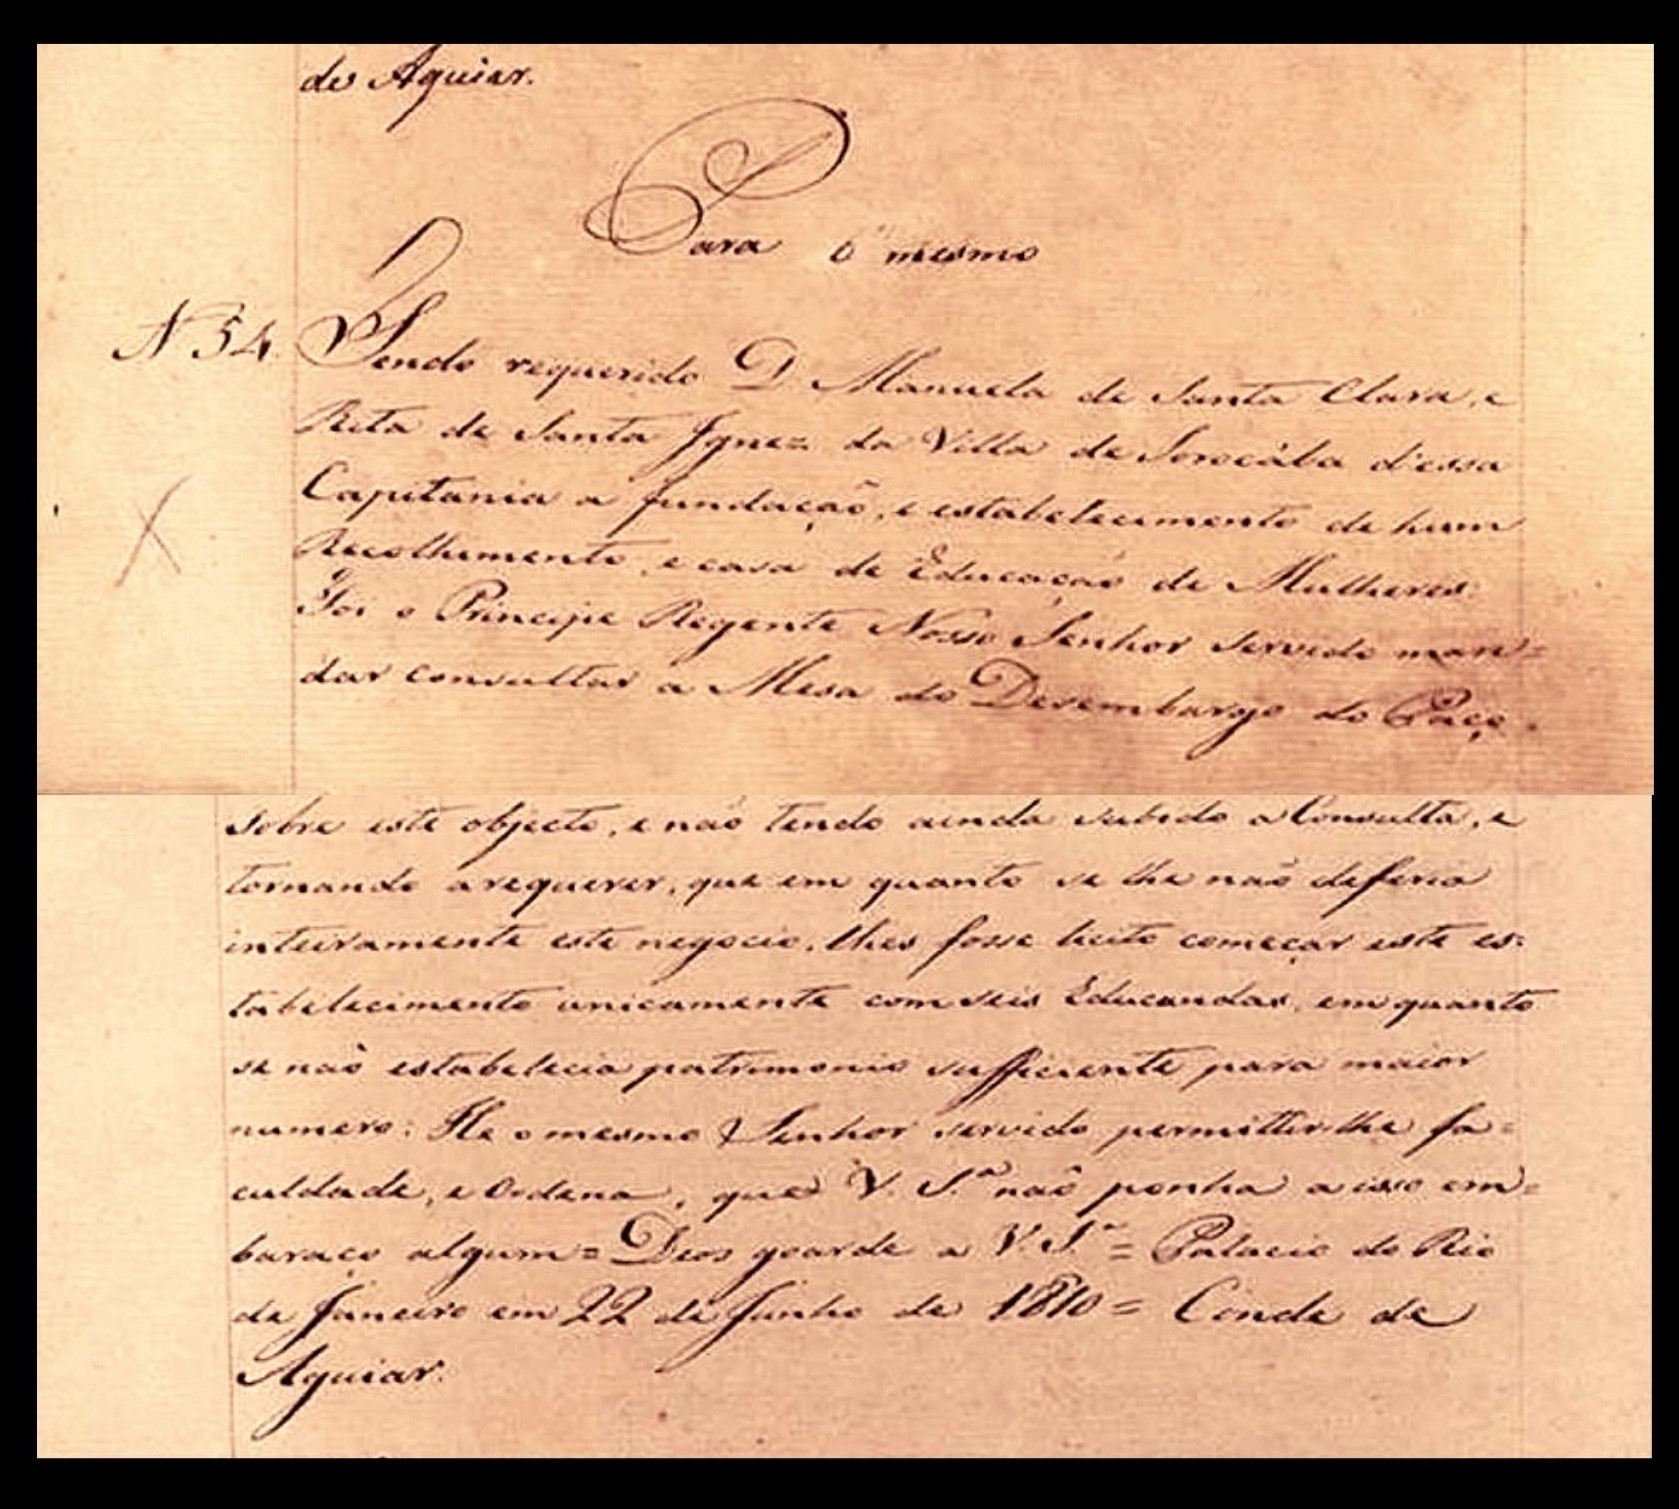 de Aguiar.
Para o mesmo
N 54.
Sendo requerido D Manuela de Santa Clara, e
Rita de Santa Ignez da Villa de Sorocába d'essa
Capitania a fundação, e estabelecimento de hum
Recolhimento, e casa de Educação de Mulheres:
Foi o Principe Regente Nosso Senhor servido man=
dar consultar a Mesa do Desembargo do Paço
sobre este objecto, e não tendo ainda subido a Consulta, e
tornando a requerer, que em quanto se lhe não deferia
inteiramente este negocio, lhes fosse licito começar este es=
tabelecimento unicamente com seis Educandas, em quanto
se não estabelecia patrimonio sufficiente para maior
numero: He o mesmo Senhor servido permittir-lhe fa=
culdade, e Ordena, que V. S.ª não ponha a isso em=
baraço algum = Deos guarde a V. S.ª = Palacio do Rio
de Janeiro em 22 de Junho de 1810 = Conde de
Aguiar.